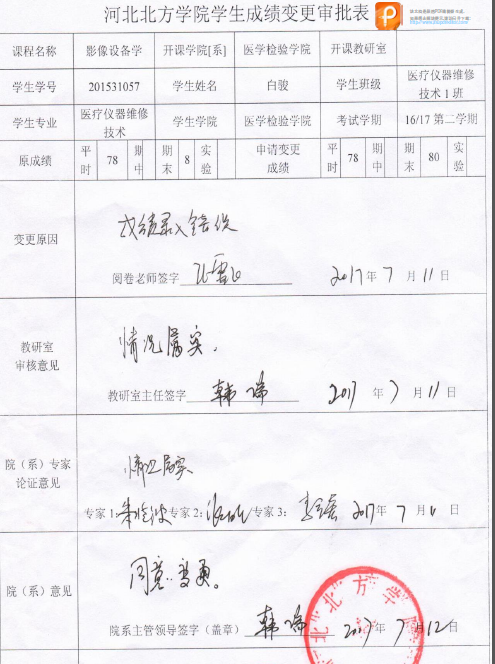 河北北方学院学生成绩变更审批表
课程名称 影像设备学 开课学院[系] 医学检验学院 开课教研室
学生学号 201531057 学生姓名 白骏 学生班级 医疗仪器维修技术1班
学生专业 医疗仪器维修技术 学生学院 医学检验学院 考试学期 16/17 第二学期
原成绩 平时 78 期中 期末 8 实验 申请变更成绩 平时 78 期中 期末 80 实验
变更原因
成绩录入错误
阅卷老师签字 2017年7月11日
教研室审核意见
情况属实。
教研室主任签字 韩瑞 2017年7月11日
院（系）专家论证意见
情况属实
专家1: 专家2: 专家3: 2017年7月日
院（系）意见
同意变更。
院系主管领导签字（盖章） 韩瑞 2017年7月12日
北北方学